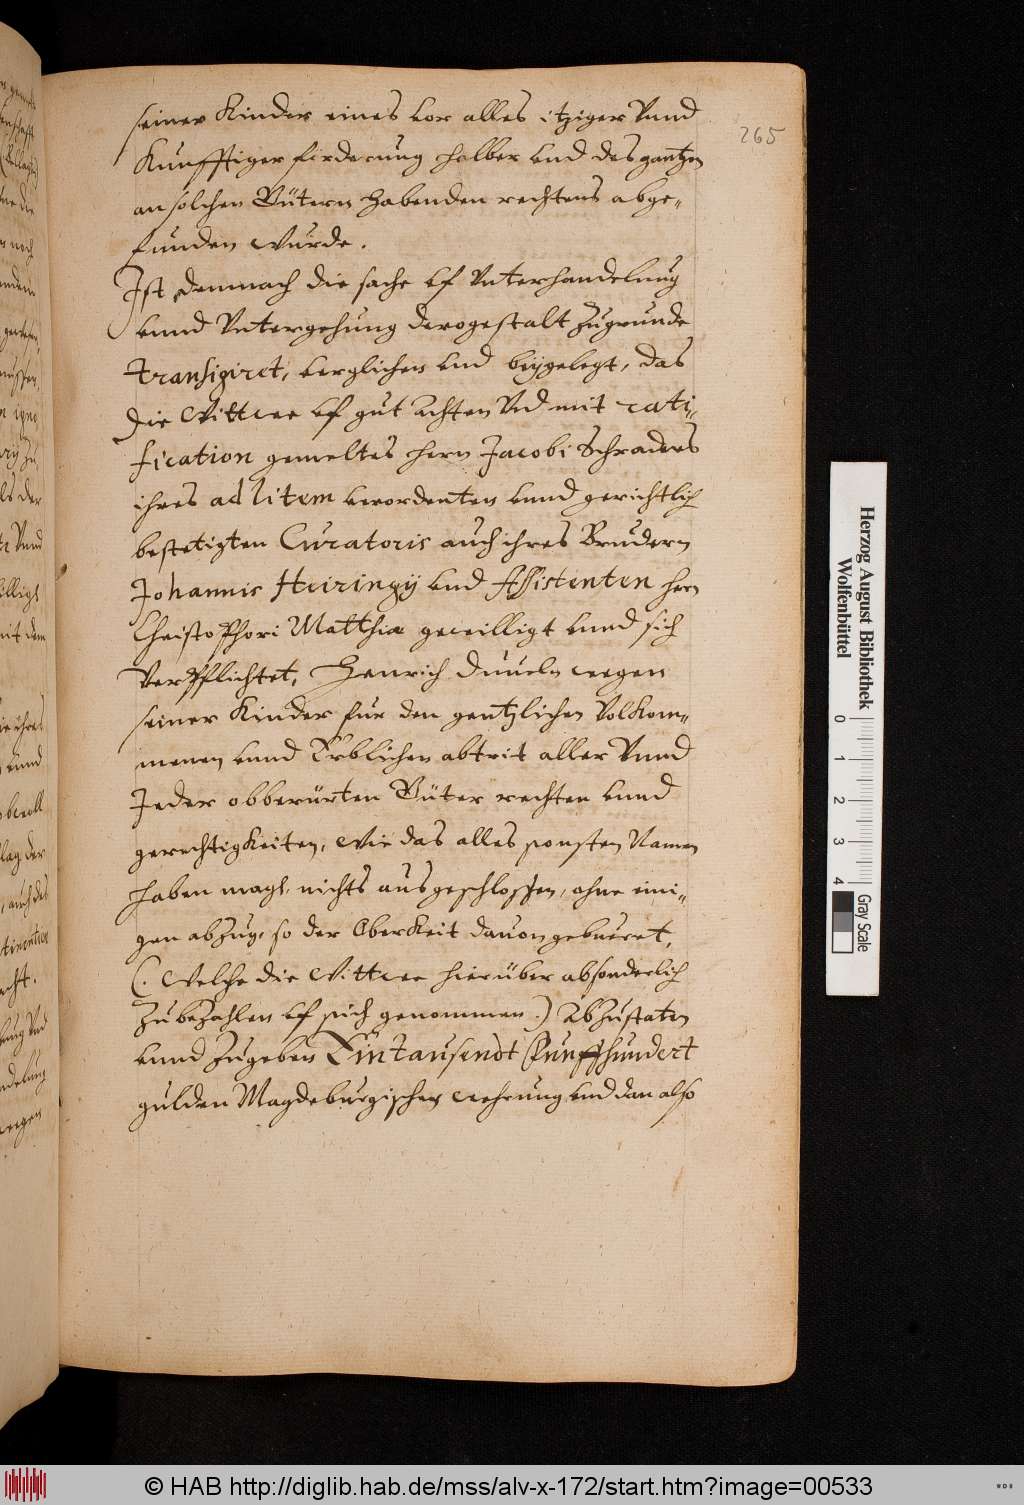 265
seiner Kinder eines vor alles itziger Vnnd
Kunfftiger forderung halber vnd des gantzen
an solchen Gütern habenden rechtens abge-
funden wurde.
Ist demnach die sache vf Vnterhandelung
vnnd Vntergehung derogestalt zu grunde
transigiret, verglichen vnd beygelegt, das
die Wittwe vf gut achten Vnd mit rati-
fication gemeltes hern Jacobi Schraders
ihres ad litem verordenten vnnd gerichtlich
bestetigten Curatoris auch ihres Brudern
Johannis Heiringij vnd Assistenten hern
Christophori Matthiæ gewilligt vnnd sich
Verpflichtet, Henrich Duueln wegen
seiner Kinder fur den gentzlichen Volkom-
menen vnnd Erblichen abtrit aller Vnnd
Jeder obberürten Güter rechten vnnd
gerechtigkeiten, wie das alles sonsten Namen
haben magk, nichts ausgeschlossen, ohne eini-
gen abzug, so der Oberkeit dauon gebueret,
(. welche die Wittwe hierüber absonderlich
zubezahlen vf sich genommen.) Abzustaten
vnnd zugeben Eintausendt Funffhundert
gulden Magdeburgischer wehrung vnd dan also
Herzog August Bibliothek
Wolfenbüttel
0 1 2 3 4
Gray Scale
© HAB http://diglib.hab.de/mss/alv-x-172/start.htm?image=00533